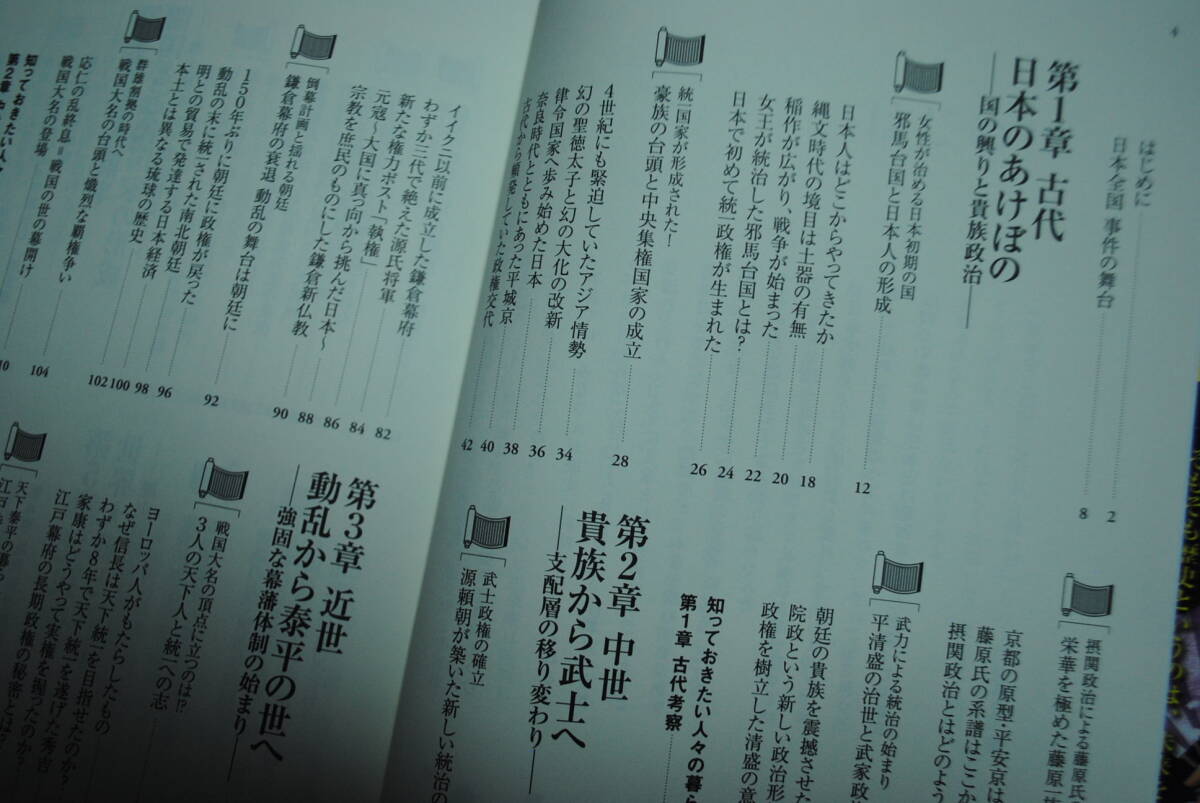 4
はじめに 2
日本全国 事件の舞台 8
第1章 古代
日本のあけぼの
―国の興りと貴族政治―
女性が治める日本初期の国
邪馬台国と日本人の形成 12
日本人はどこからやってきたか 18
縄文時代の境目は土器の有無 20
稲作が広がり、戦争が始まった 22
女王が統治した邪馬台国とは? 24
日本で初めて統一政権が生まれた 26
統一国家が形成された!
豪族の台頭と中央集権国家の成立 28
4世紀にも緊迫していたアジア情勢 34
幻の聖徳太子と幻の大化の改新 36
律令国家へ歩み始めた日本 38
奈良時代とともにあった平城京 40
古代から頻発していた政権交代 42
摂関政治による藤原氏
栄華を極めた藤原
京都の原型・平安京は
藤原氏の系譜はここか
摂関政治とはどのよう
武力による統治の始まり
平清盛の治世と武家政
朝廷の貴族を震撼させた
院政という新しい政治形
政権を樹立した清盛の意
知っておきたい人々の暮ら
第1章 古代考察
第2章 中世
貴族から武士へ
―支配層の移り変わり―
武士政権の確立
源頼朝が築いた新しい統治の
イイクニ以前に成立した鎌倉幕府 82
わずか三代で絶えた源氏将軍 84
新たな権力ポスト「執権」 86
元寇~大国に真っ向から挑んだ日本~ 88
宗教を庶民のものにした鎌倉新仏教 90
倒幕計画と揺れる朝廷
鎌倉幕府の衰退 動乱の舞台は朝廷に 92
150年ぶりに朝廷に政権が戻った 96
動乱の末に統一された南北朝廷 98
明との貿易で発達する日本経済 100
本土とは異なる琉球の歴史 102
群雄割拠の時代へ
戦国大名の台頭と熾烈な覇権争い 104
応仁の乱終息=戦国の世の幕開け
戦国大名の登場
知っておきたい人々
第2章
第3章 近世
動乱から泰平の世へ
―強固な幕藩体制の始まり―
戦国大名の頂点に立つのは!?
3人の天下人と統一への志
ヨーロッパ人がもたらしたもの
なぜ信長は天下統一を目指せたのか?
わずか8年で天下統一を遂げた秀吉
家康はどうやって実権を掴ったのか?
江戸幕府の長期政権の秘密とは?
天下泰平の